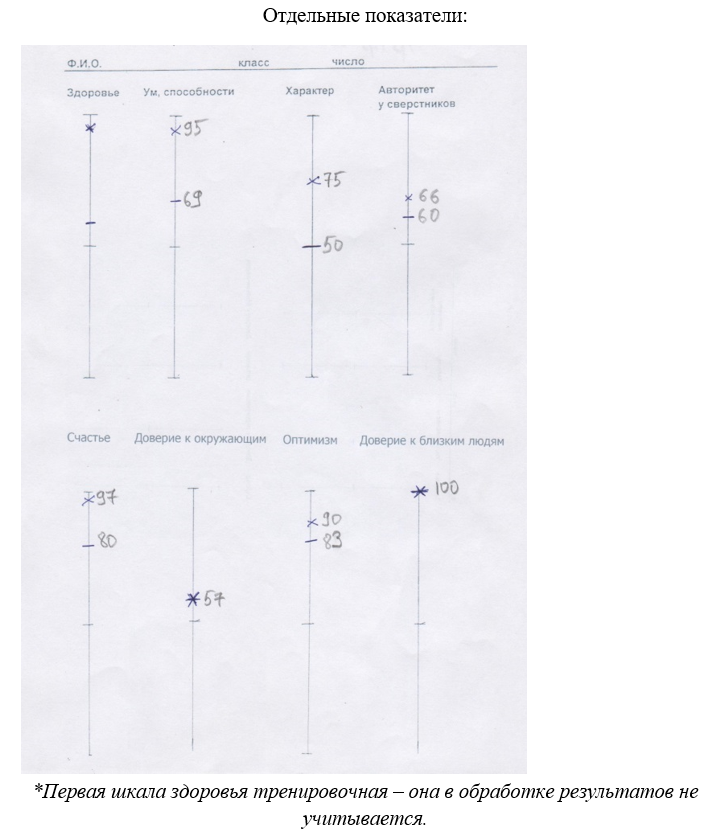 Отдельные показатели:
Ф.И.О. класс число
Здоровье Ум, способности Характер Авторитет
у сверстников
95
75
69
66
60
50
Счастье Доверие к окружающим Оптимизм Доверие к близким людям
100
97
90
83
80
57
*Первая шкала здоровья тренировочная – она в обработке результатов не
учитывается.